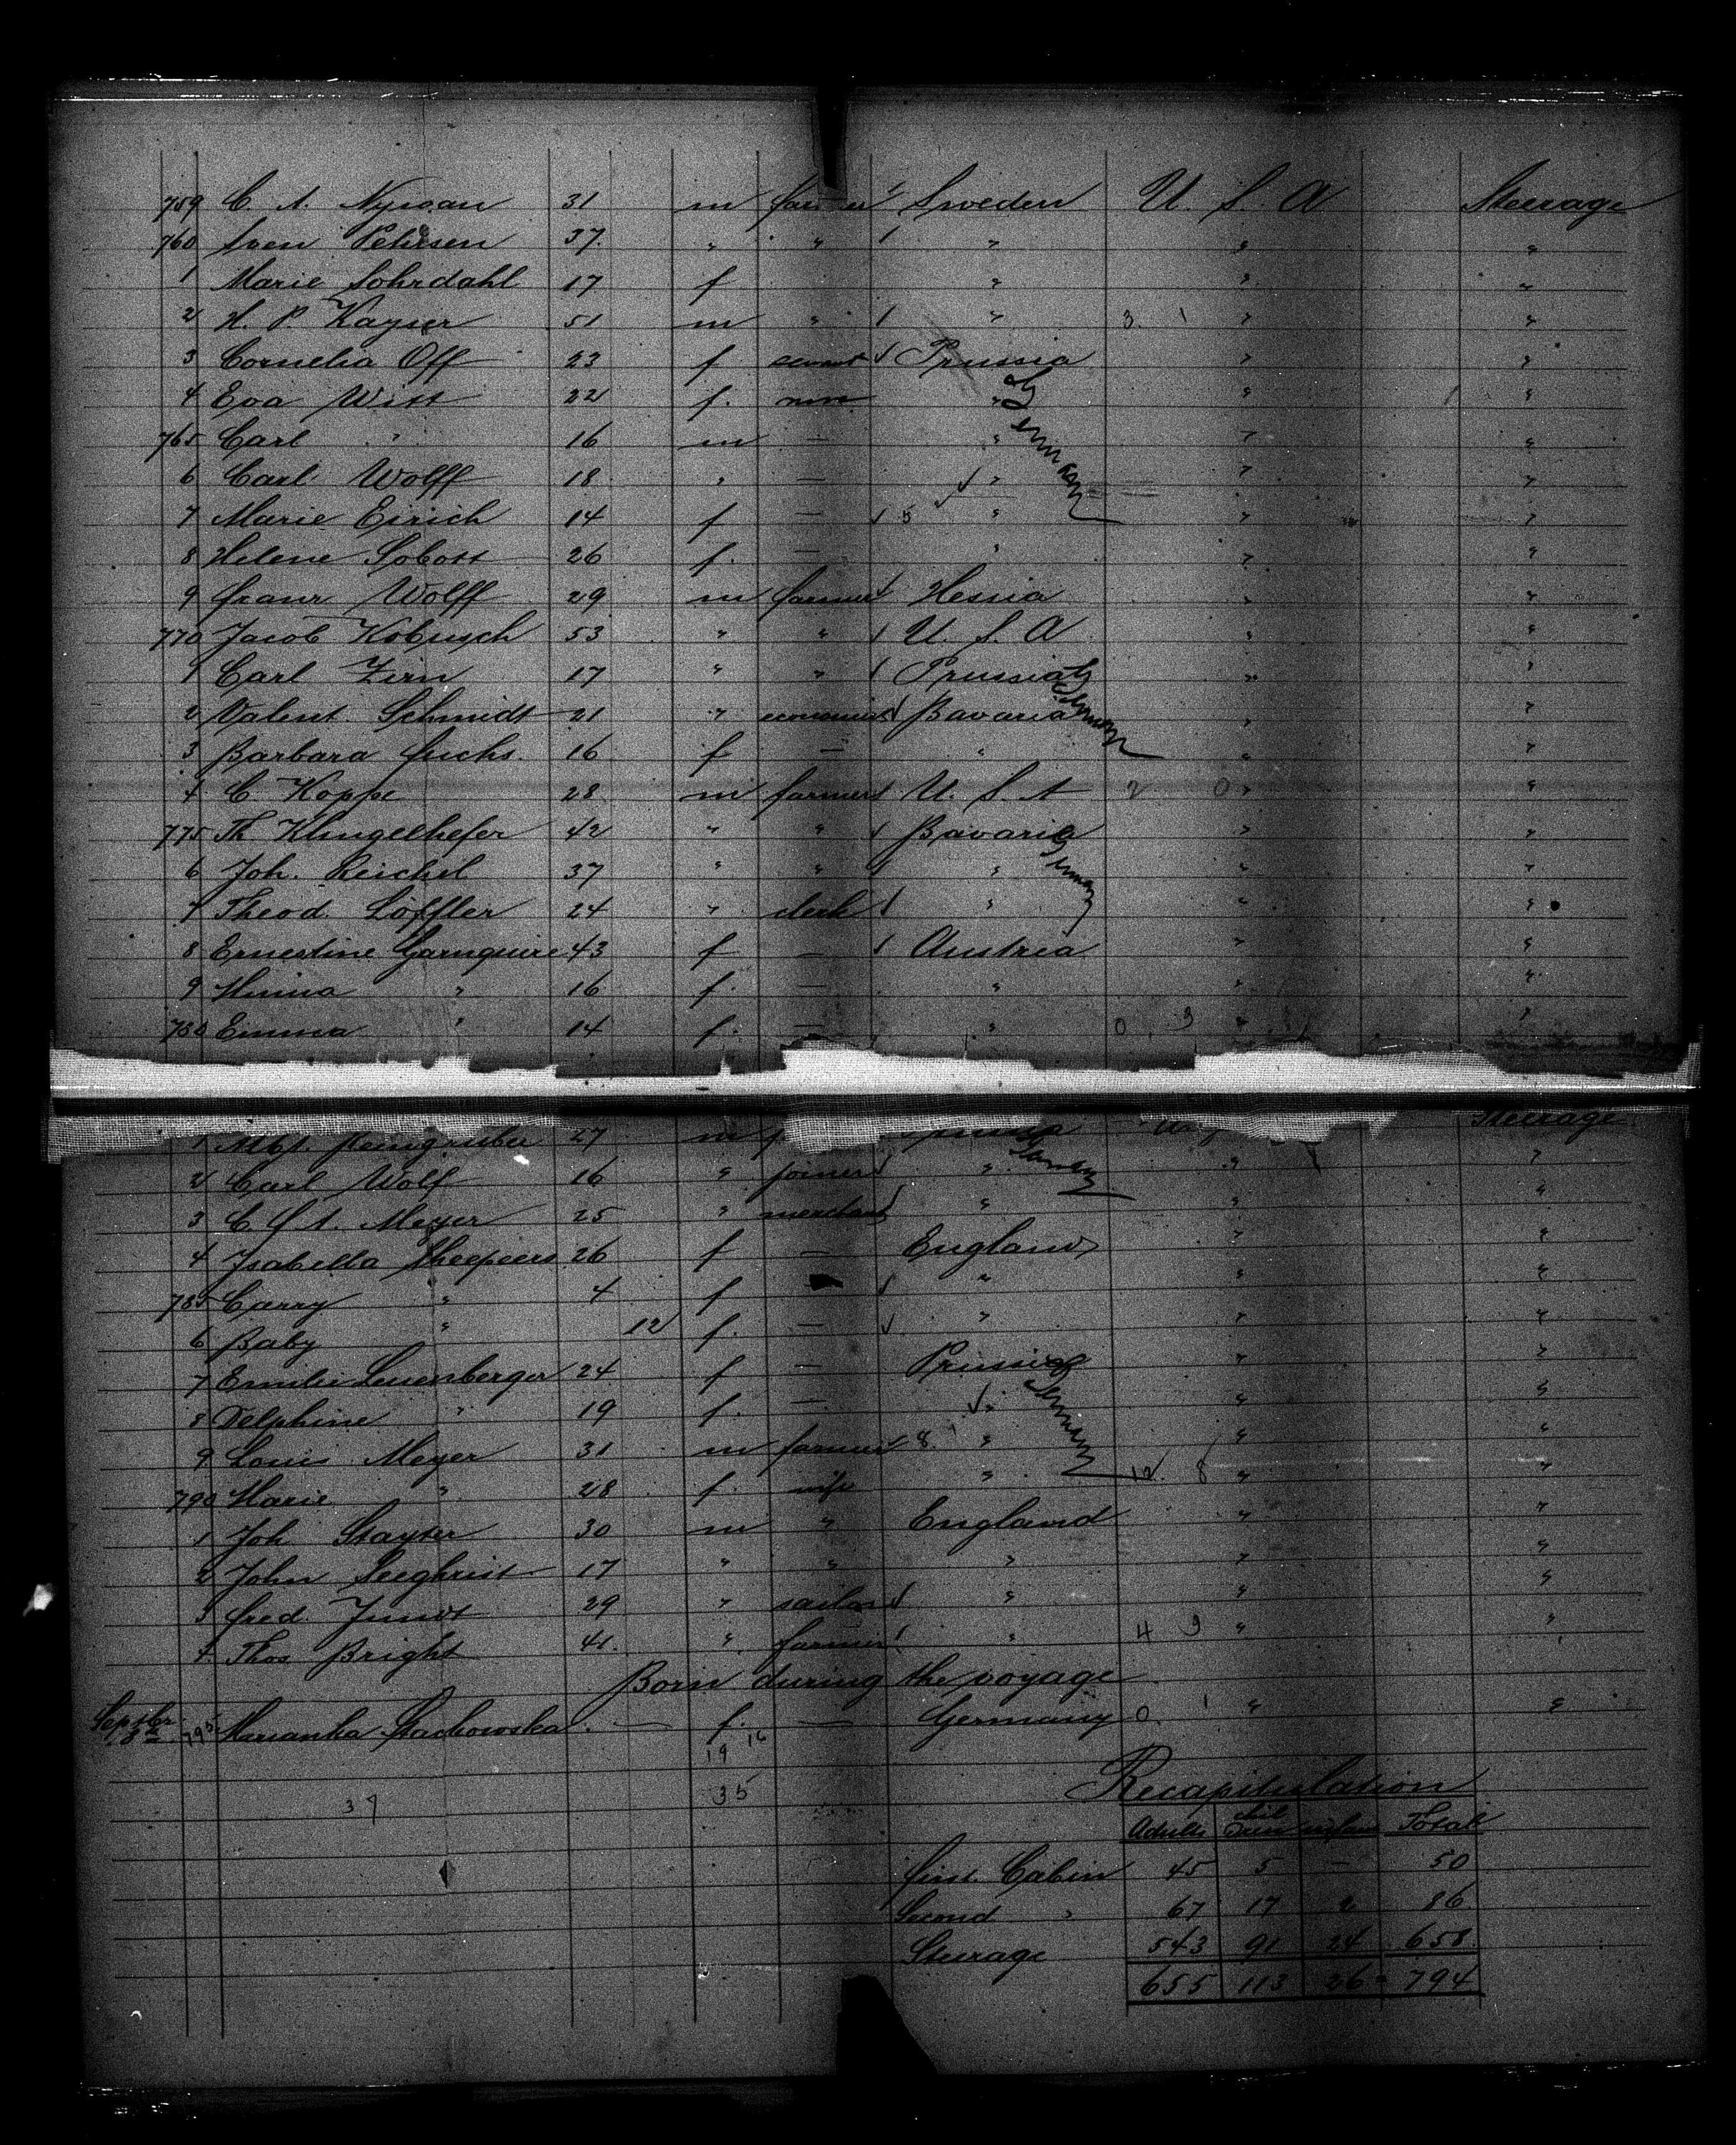 759 C. A. 31 m farmer Sweden U. S. A Steerage
760 Sven Petersen 37 " " " " "
1 Marie Sohrdahl 17 f " " "
2 H. P. Kayser 51 m " " 3 1 " "
3 Cornelia Off 23 f servant Prussia " "
4 Eva Witt 22 f. none " " "
Germany
765 Carl " 16 m — " " "
6 Carl Wolff 18 " — " " "
7 Marie Eirich 14 f — 5 " " "
8 Helene Sobott 26 f. — " " "
9 Franz Wolff 29 m farmer Hessia " "
770 Jacob Kobusch 53 " " U. S. A " "
1 Carl Zirn 17 " " Prussia " "
Germany
2 Valent. Schmidt 21 " Bavaria " "
3 Barbara Fuchs. 16 f — " " "
4 C Koppe 28 m farmer U. S. A 2 0 " "
775 Th Klingelhefer 42 " " Bavaria " "
Germany
6 Joh. Reichel 37 " " " " "
7 Theod. Löffler 24 " clerk " " "
8 Ernestine Garnquire 43 f — Austria " "
9 Minna " 16 f. — " " "
780 Emma " 14 f. — " 0 3 " "
1 27 m Steerage
Germany
2 Carl Wolf 16 " joiner " " "
3 C. F. A. Meyer 25 " merchant " " "
4 Isabella Sheepeers 26 f — England " "
785 Carry " 4 f — " " "
6 Baby " 12 f. — " " "
7 Emilie Leuenberger 24 f — Prussia " "
Germany
8 Delphine " 19 f. — " " "
9 Louis Meyer 31 m farmer 8 1 " " "
790 Marie " 28 f. wife " 12 8 " "
1 Joh Stayser 30 m " England " "
2 John Seeghrist 17 " " " " "
3 Fred. Jundt 29 " sailor " " "
4 Thos. Bright 41. " farmer " 4 3 " "
Born during the voyage
Septbr 8th 795 Marianka Stachowska. — f. — Germany 0 1 " "
19 16
35
37
Recapitulation
Adults Children Infants Total
First Cabin 45 5 — 50
Second " 67 17 2 86
Steerage 543 91 24 658
655 113 26 794